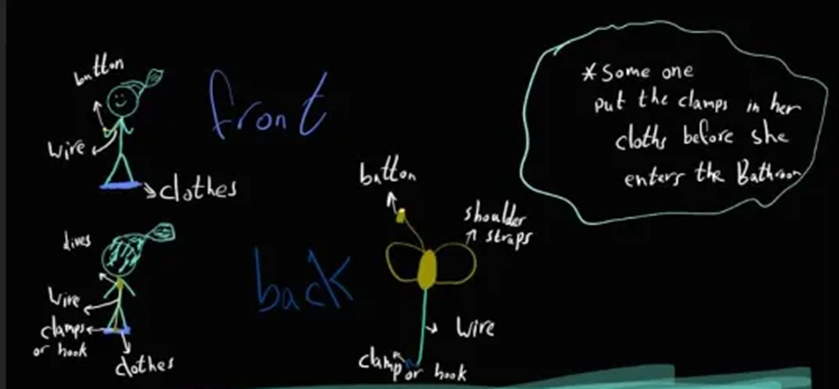 button
front
wire
clothes
dives
back
wire
clamps
or hook
clothes
button
shoulder
straps
wire
clamp or hook
*Some one
put the clamps in her
cloths before she
enters the Bathroom